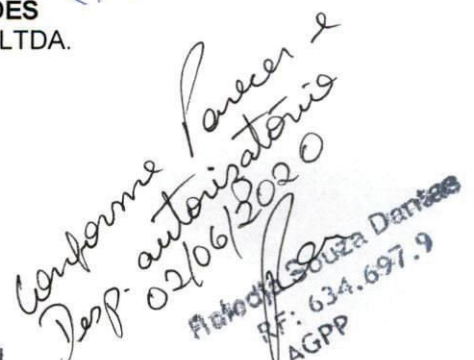 DES
LTDA.
conforme Parecer e
Desp. autorizatório
02/06/2020
Souza Dantas
RF: 634.697.9
AGPP